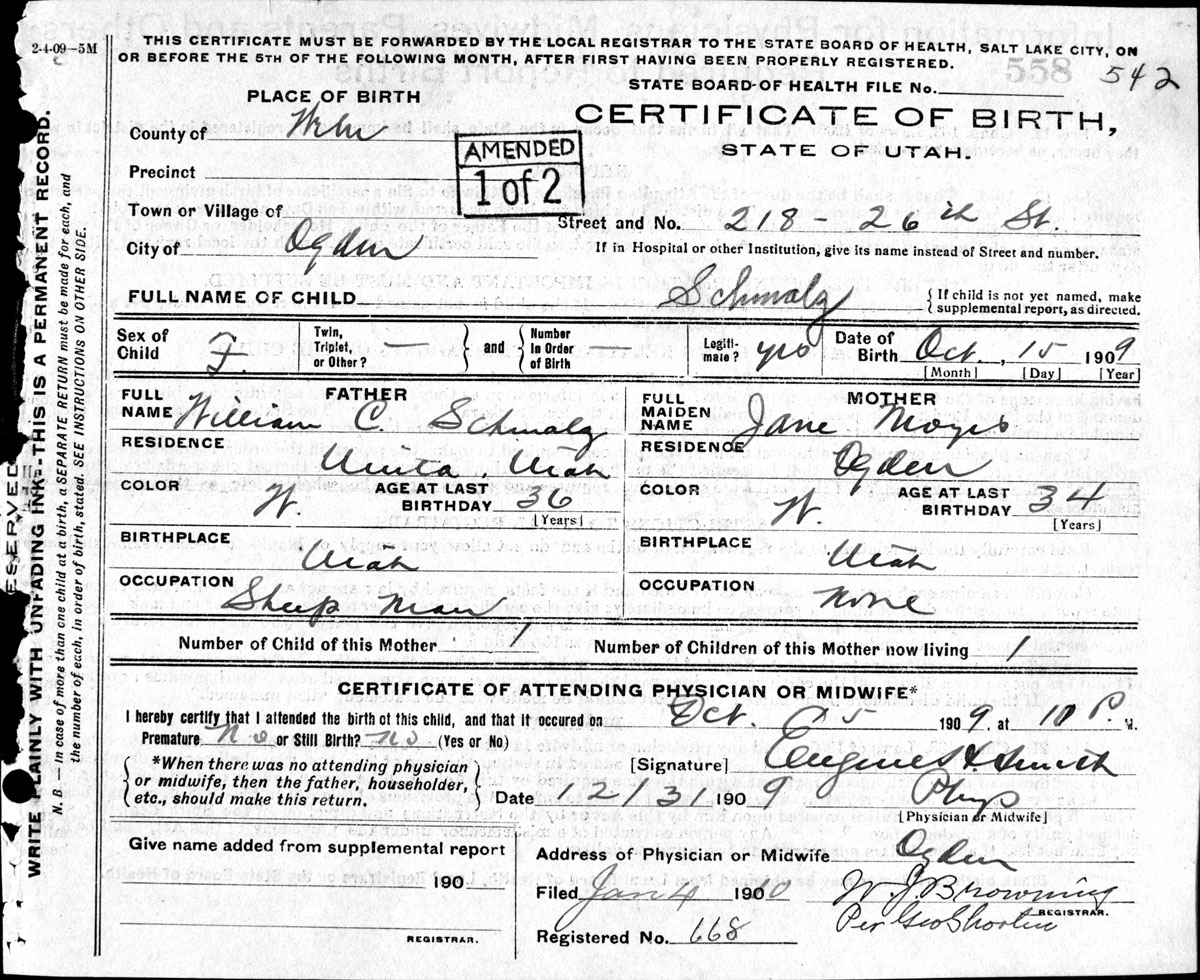 2-4-09—5M
THIS CERTIFICATE MUST BE FORWARDED BY THE LOCAL REGISTRAR TO THE STATE BOARD OF HEALTH, SALT LAKE CITY, ON
OR BEFORE THE 5TH OF THE FOLLOWING MONTH, AFTER FIRST HAVING BEEN PROPERLY REGISTERED.
558
542
STATE BOARD OF HEALTH FILE No.
PLACE OF BIRTH
CERTIFICATE OF BIRTH,
STATE OF UTAH.
County of
AMENDED
1 of 2
Precinct
Town or Village of
Street and No. 218 - 26th St.
City of Ogden
If in Hospital or other Institution, give its name instead of Street and number.
FULL NAME OF CHILD Schmalz
{If child is not yet named, make
supplemental report, as directed.
Sex of Child F.
Twin, Triplet, or Other? —
} and {
Number In Order of Birth —
Legiti- mate? yes
Date of Birth Oct. 15 1909
[Month] [Day] [Year]
FATHER
FULL NAME William C. Schmalz
RESIDENCE
Uinta, Utah
COLOR W.
AGE AT LAST BIRTHDAY 36
[Years]
BIRTHPLACE
Utah
OCCUPATION
Sheep Man
MOTHER
FULL MAIDEN NAME Jane
RESIDENCE Ogden
COLOR W.
AGE AT LAST BIRTHDAY 34
[Years]
BIRTHPLACE
Utah
OCCUPATION
None
Number of Child of this Mother 1
Number of Children of this Mother now living 1
CERTIFICATE OF ATTENDING PHYSICIAN OR MIDWIFE*
I hereby certify that I attended the birth of this child, and that it occured on Oct. 15 1909, at 10 P. M.
Premature No or Still Birth? No (Yes or No)
*When there was no attending physician
or midwife, then the father, householder,
etc., should make this return.
[Signature] Smith
Date 12/31 1909 Phys
[Physician or Midwife]
Give name added from supplemental report
190
REGISTRAR.
Address of Physician or Midwife Ogden
Filed Jan 4 1910 W. J. Browning
REGISTRAR.
Per Geo
Registered No. 668
RESERVED
WRITE PLAINLY WITH UNFADING INK—THIS IS A PERMANENT RECORD.
N. B.—In case of more than one child at a birth, a SEPARATE RETURN must be made for each, and
the number of each, in order of birth, stated. SEE INSTRUCTIONS ON OTHER SIDE.